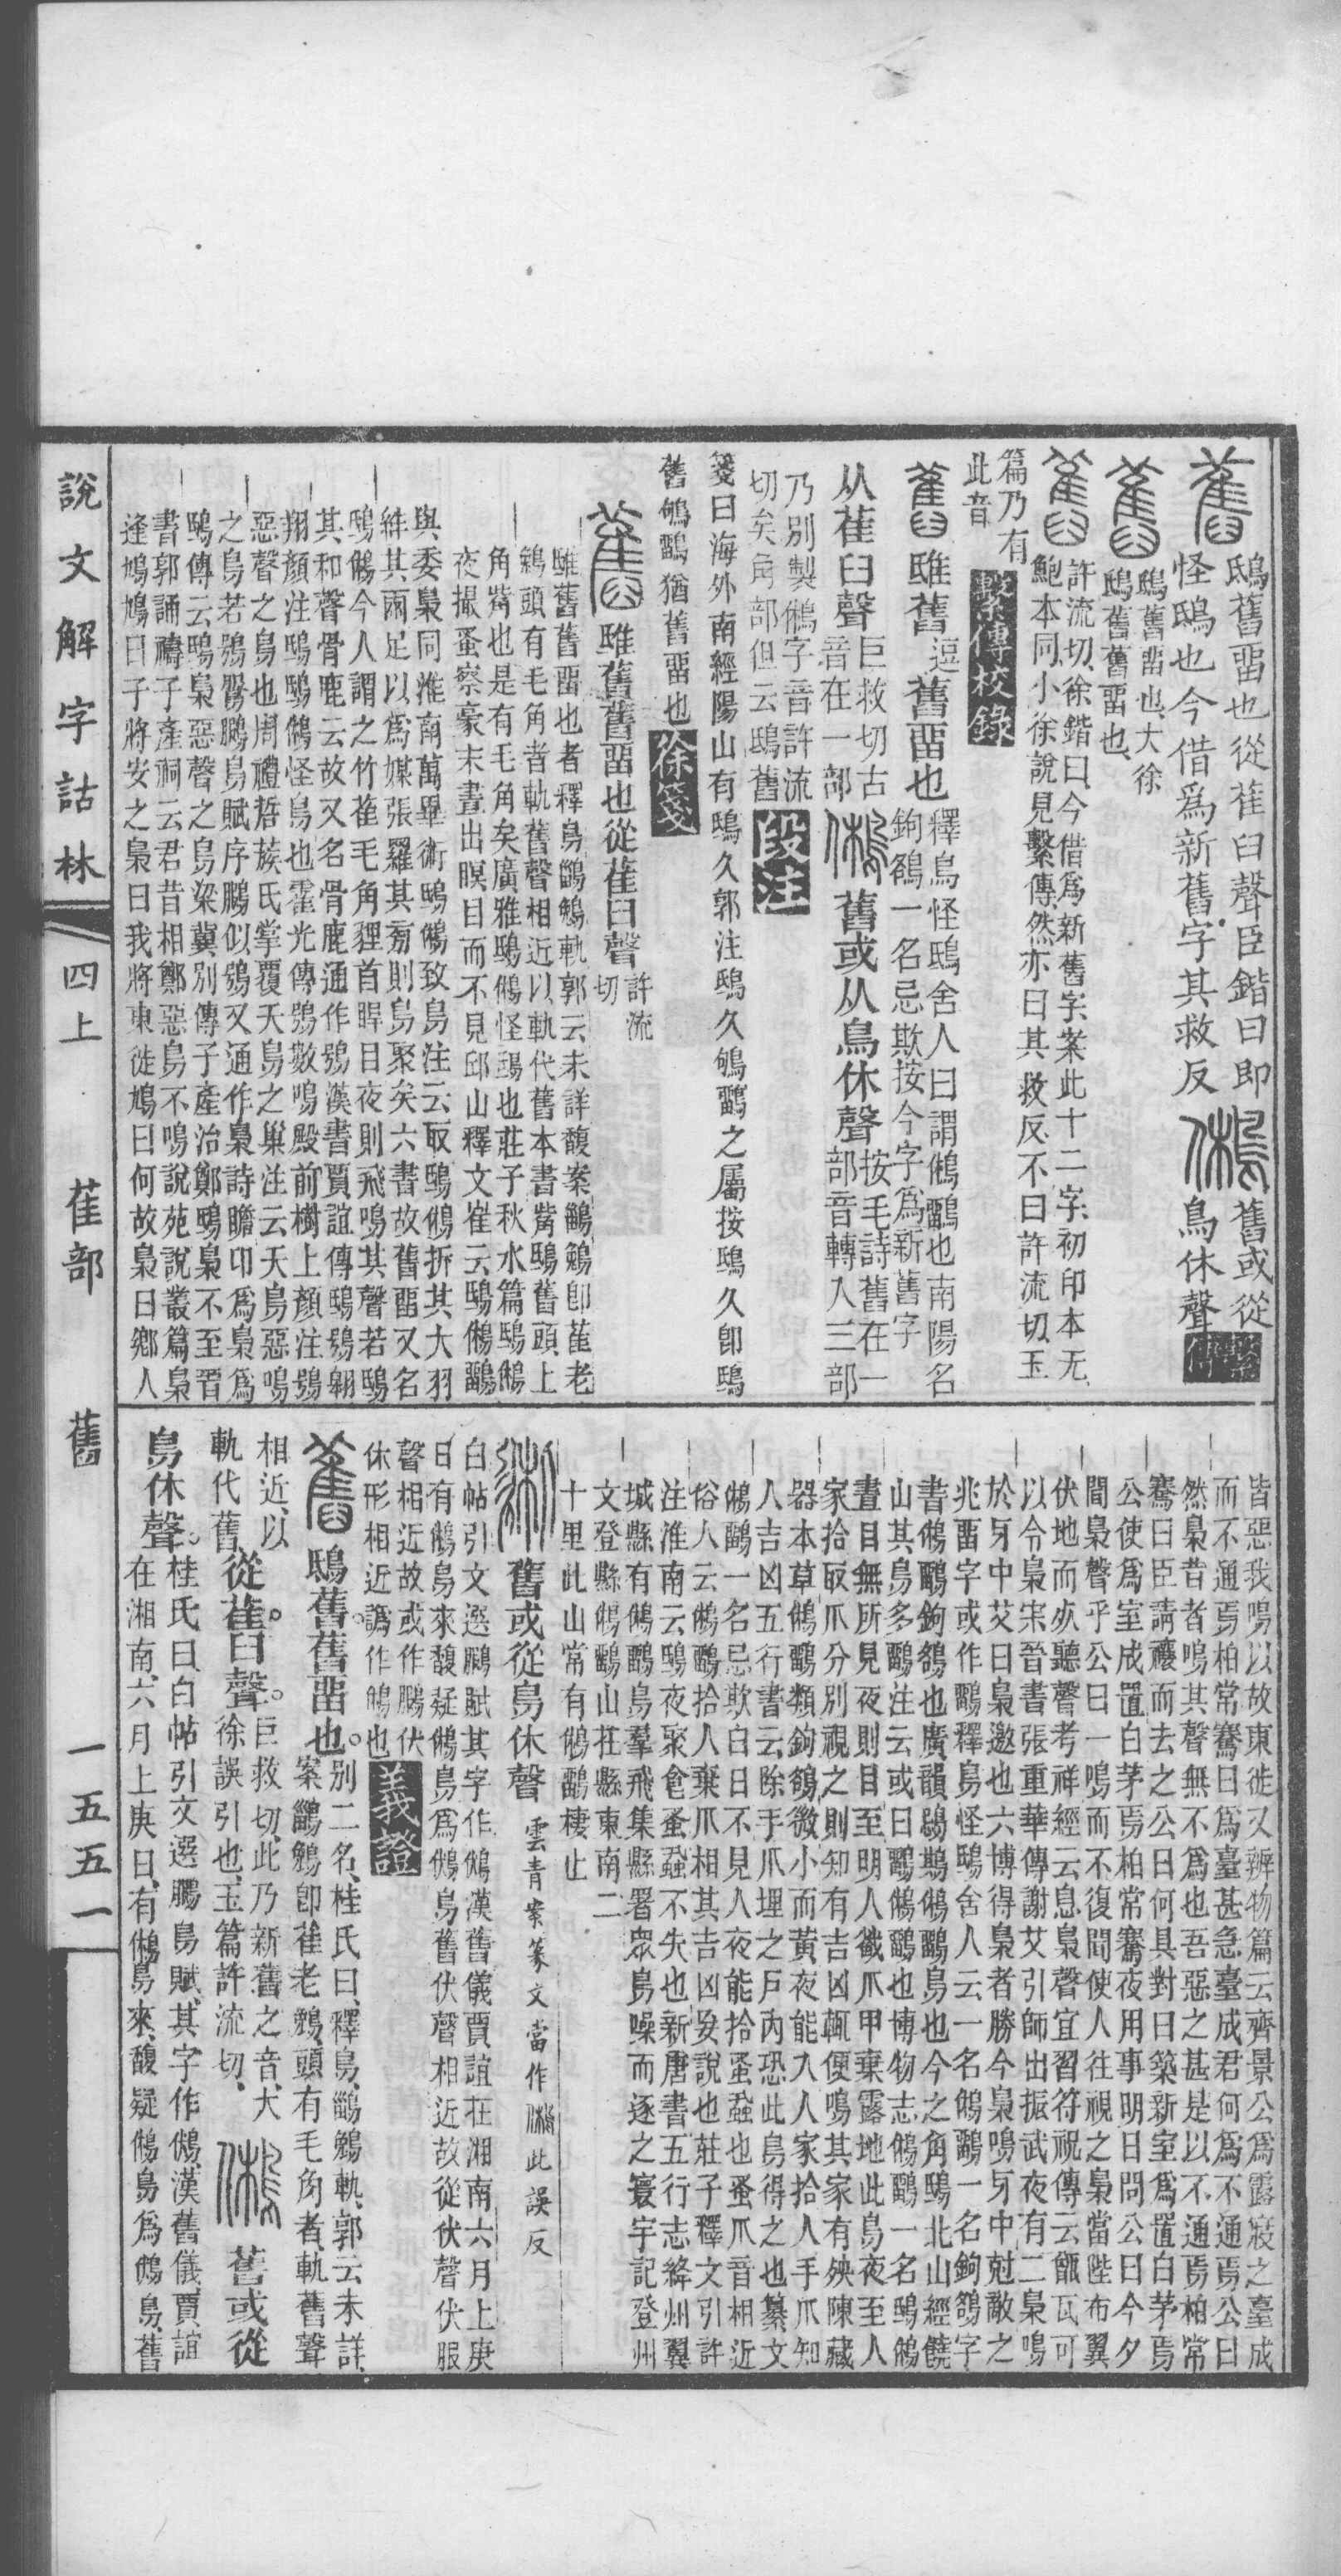 鴟舊舊畱也從萑臼聲臣鍇曰即
怪鴟也今借爲新舊字其救反
鵂舊或從
鳥休聲
繫傳
鴟舊舊畱也大徐
鴟舊舊畱也
許流切徐鍇曰今借爲新舊字案此十二字初印本无
鮑本同小徐說見繫傳然亦曰其救反不曰許流切玉
篇乃有
此音
繫傳校錄
舊
雖舊
逗
舊畱也
釋鳥怪鴟舍人曰謂鵂鶹也南陽名
鉤鵅一名忌欺按今字爲新舊字
从萑臼聲
巨救切古
音在一部
鵂
舊或从鳥休聲
按毛詩舊在一
部音轉入三部
乃別製鵂字音許流
切矣角部但云鴟舊
段注
箋曰海外南經陽山有鴟久郭注鴟久鵂鶹之屬按鴟久卽鴟
舊鵂鶹猶舊畱也
徐箋
舊
雖舊舊畱也從萑臼聲
許流
切
雖舊舊畱也者釋鳥鶹鷅軌郭云未詳馥案鶹鷅卽萑老
鵵頭有毛角者軌舊聲相近以軌代舊本書觜鴟舊頭上
角觜也是有毛角矣廣雅鴟鵂怪鴟也莊子秋水篇鴟鵂
夜撮蚤察豪末晝出瞑目而不見邱山釋文崔云鴟鵂鶹
與委梟同淮南萬畢術鴟鵂致鳥注云取鴟鵂折其大羽
絆其兩足以爲媒張羅其旁則鳥聚矣六書故舊畱又名
鴟鵂今人謂之竹萑毛角狸首睅目夜則飛鳴其聲若鴟
其和聲骨鹿云故又名骨鹿通作鴞漢書賈誼傳鴟鴞翱
翔顏注鴟鴟鵂怪鳥也霍光傳鴞數鳴殿前樹上顏注鴞
惡聲之鳥也周禮硩蔟氏掌覆夭鳥之巢注云夭鳥惡鳴
之鳥若鴞鵩鵩鳥賦序鵩似鴞又通作梟詩瞻卬爲梟爲
鴟傳云鴟梟惡聲之鳥梁冀別傳子產治鄭鴟梟不至晉
書郭誦禱子產祠云君昔相鄭惡鳥不鳴說苑說叢篇梟
逢鳩鳩曰子將安之梟曰我將東徙鳩曰何故梟曰鄉人
皆惡我鳴以故東徙又辨物篇云齊景公爲露寢之臺成
而不通焉柏常騫曰爲臺甚急臺成君何爲不通焉公曰
然梟昔者鳴其聲無不爲也吾惡之甚是以不通焉柏常
騫曰臣請禳而去之公曰何具對曰築新室爲置白茅焉
公使爲室成置白茅焉柏常騫夜用事明日問公曰今夕
聞梟聲乎公曰一鳴而不復聞使人往視之梟當陛布翼
伏地而死聽聲考祥經云息梟聲宜習符祝傳云甑瓦可
以令梟宋晉書張重華傳謝艾引師出振武夜有二梟鳴
於牙中艾曰梟邀也六博得梟者勝今梟鳴牙中尅敵之
兆畱字或作鶹釋鳥怪鴟舍人云一名鵂鶹一名鉤鵅字
書鵂鶹鉤鵅也廣韻鵋䳢鵂鶹鳥也今之角鴟北山經饒
山其鳥多鶹注云或曰鶹鵂鶹也博物志鵂鶹一名鴟鵂
晝目無所見夜則目至明人截爪甲棄露地此鳥夜至人
家拾取爪分別視之則知有吉凶輒便鳴其家有殃陳藏
器本草鵂鶹類鉤鵅微小而黃夜能入人家拾人手爪知
人吉凶五行書云除手爪埋之戶內恐此鳥得之也纂文
鵂鶹一名忌欺白日不見人夜能拾蚤蝨也蚤爪音相近
俗人云鵂鶹拾人棄爪相其吉凶妄說也莊子釋文引許
注淮南云鴟夜聚食蚤蝨不失也新唐書五行志絳州翼
城縣有鵂鶹鳥羣飛集縣署眾鳥噪而逐之寰宇記登州
文登縣鵂鶹山在縣東南二
十里此山常有鵂鶹棲止
舊或從鳥休聲
雲青案篆文當作鵂此誤反
白帖引文選鵩賦其字作鵂漢舊儀賈誼在湘南六月上庚
日有鵂鳥來馥疑鵂鳥爲鵂鳥舊伏聲相近故從伏聲伏服
聲相近故或作鵩伏
休形相近譌作鵂也
義證
舊
鴟舊。舊畱也。
別二名。桂氏曰、釋鳥、鶹鷅軌、郭云未詳、
案鶹鷅卽萑老鵵、頭有毛角者、軌舊聲
相近、以
軌代舊
從萑。臼聲。
巨救切、此乃新舊之音、大
徐誤引也、玉篇許流切、
鵂
舊或從
鳥休聲。
桂氏曰、白帖引文選鵩鳥賦、其字作鵂、漢舊儀、賈誼
在湘南、六月上庚日、有鵂鳥來、馥疑鵂鳥爲鵂鳥、舊
說文解字詁林
四上
萑部
舊
一五五一